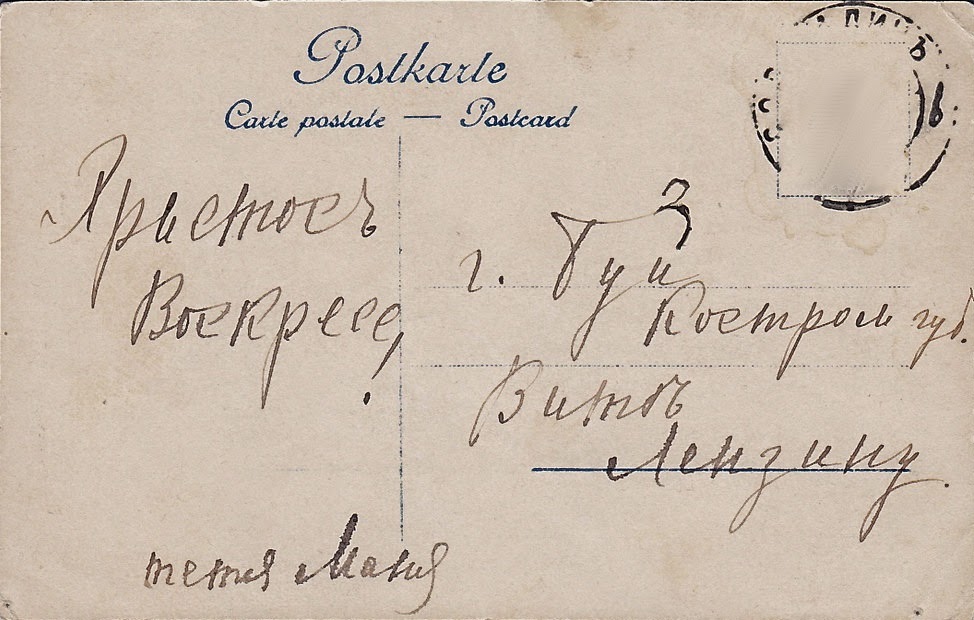 Postkarte
Carte postale — Postcard
Христосъ
Воскресе!
тетя Маня
3
г. Буй
Костром губ.
Витѣ
Лензину.